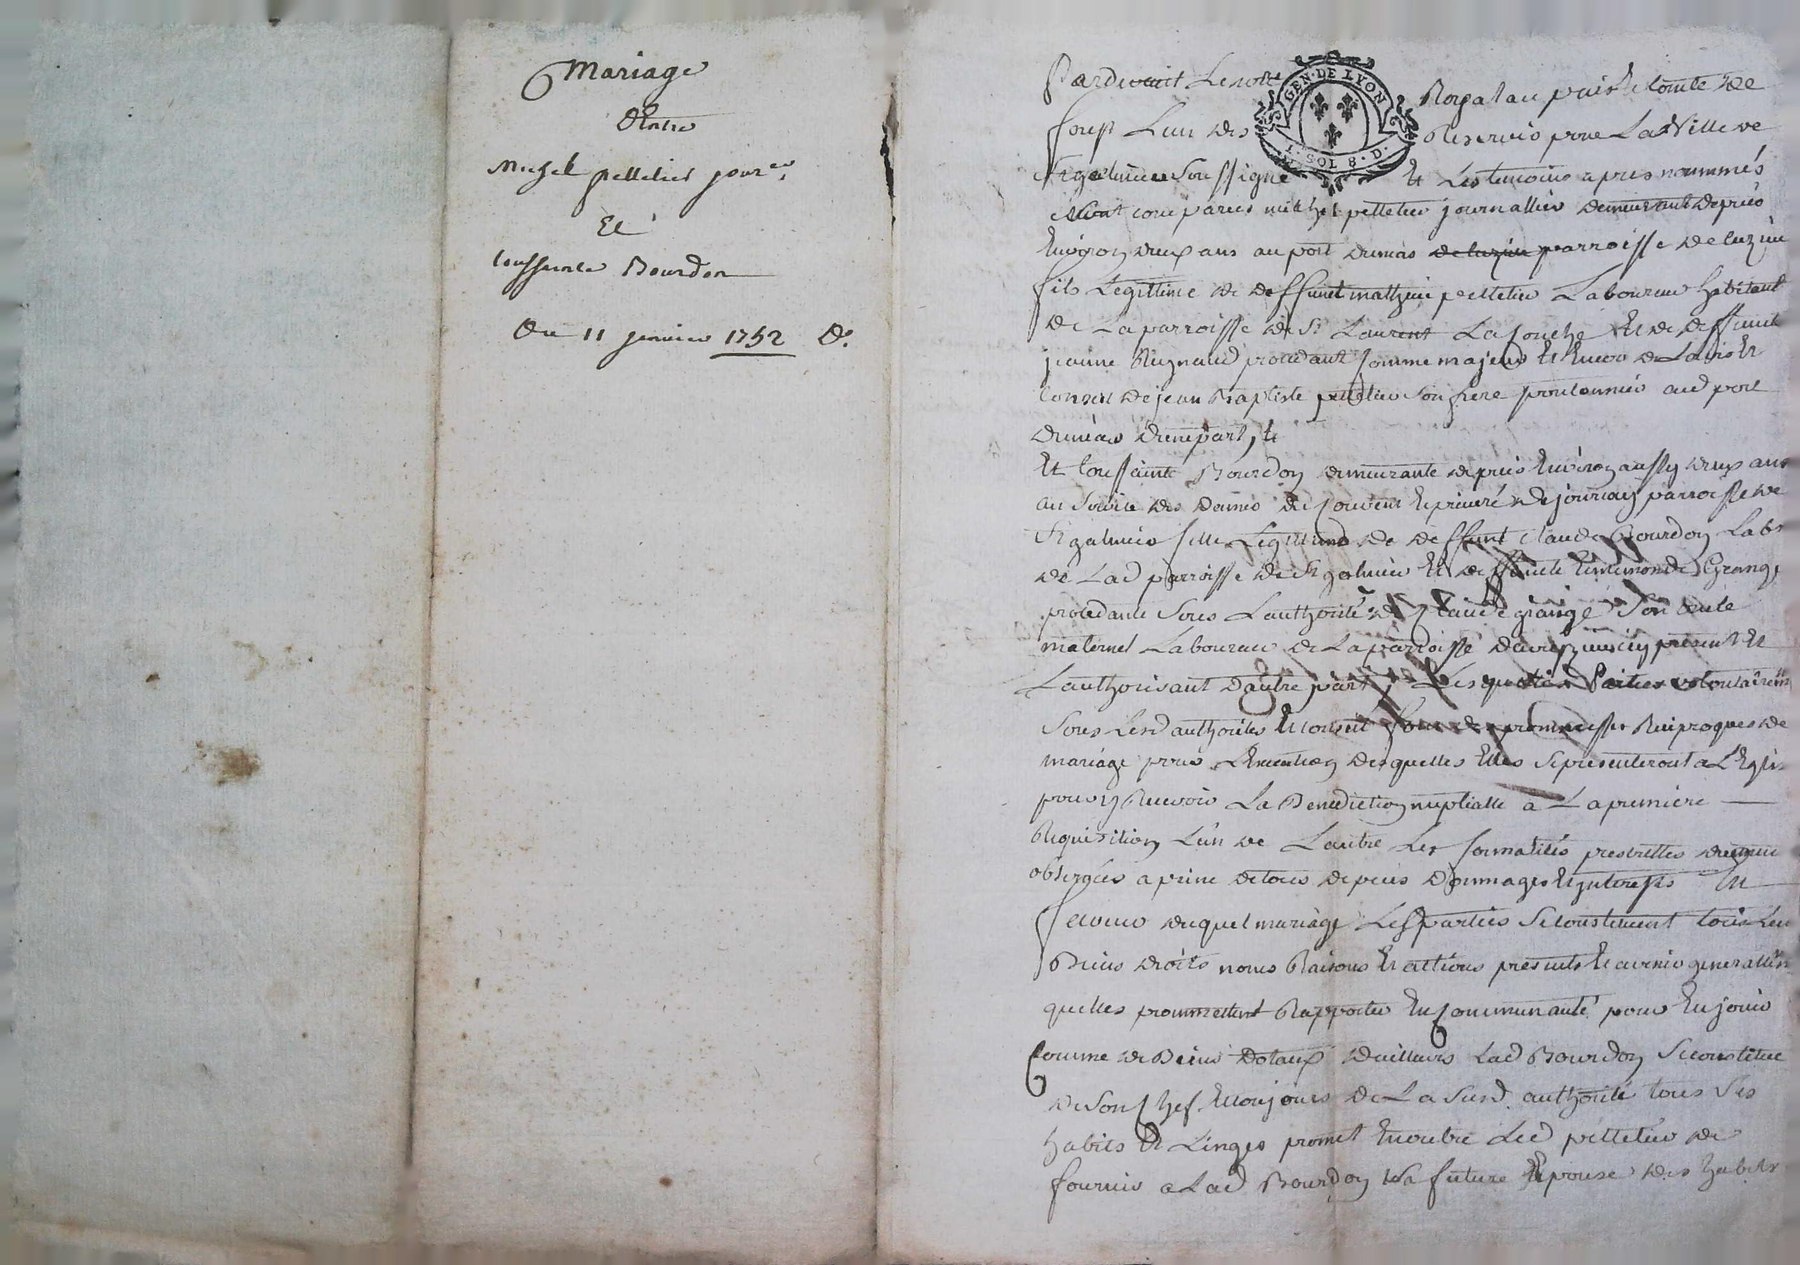 Mariage
Entre
Michel pelletier jour.er
Et
toussainte Bourdon
Du 11 janvier 1752 D.
Pardevant Le no.re Royal au païs et Comté de
GEN. DE LYON
1. SOL 8. D.
forest L'un des Reservés pour La Ville de
St galmier Soussigné Et Les temoins apres nommés
sont comparus michel pelletier journallier demeurant depuis
Environ deux ans au port dumas de luziu parroisse de luziu
fils Legittime de deffunt mathieu pelletier Laboureur habitant
de La parroisse de St Laurent La Conche Et de deffunte
jeanne Reynaud procedant comme majeur Et Encor de Lavis Et
Conseil de jean Baptiste pelletier Son frere pontonnier aud port
dumas d'une part, Et
Et toussainte Bourdon demeurante depuis Environ aussy deux ans
au Service des Dames du Couvent Et prieuré de jourcey parroisse de
St galmier fille Legittime de deffunt Claude Bourdon Lab.r
de Lad parroisse de St galmier Et deffunte Grange
procedante Sous Lauthorité de Claude grange Son oncle
maternel Laboureur de La parroisse present Et
Lauthorisant D'autre part, Lesquelles Parties volontairem
Sous Lesd authorités Et Conseil font des promesses Reciproques de
mariage pour L'Execution desquelles Elles Se presenteront a L'Eglise
pour y Recevoir La Benediction nuptialle a La premiere
Requisition L'un de L'autre Les formalités prescrittes
observées a peine de tous depens Dommages Et interests En
faveur duquel mariage Les parties Se Constituent tous Leurs
Biens droits noms Raisons Et actions presents Et avenir generallem
quelles promettent Rapporter En Communauté pour En jouir
Comme de Biens Dotaux D'ailleurs Lad Bourdon Se constitue
de Son Chef Et toujours de La Susd authorité tous Ses
habits Et Linges promet Enoutre Led pelletier de
fournir a Lad Bourdon Sa future Epouse des habits